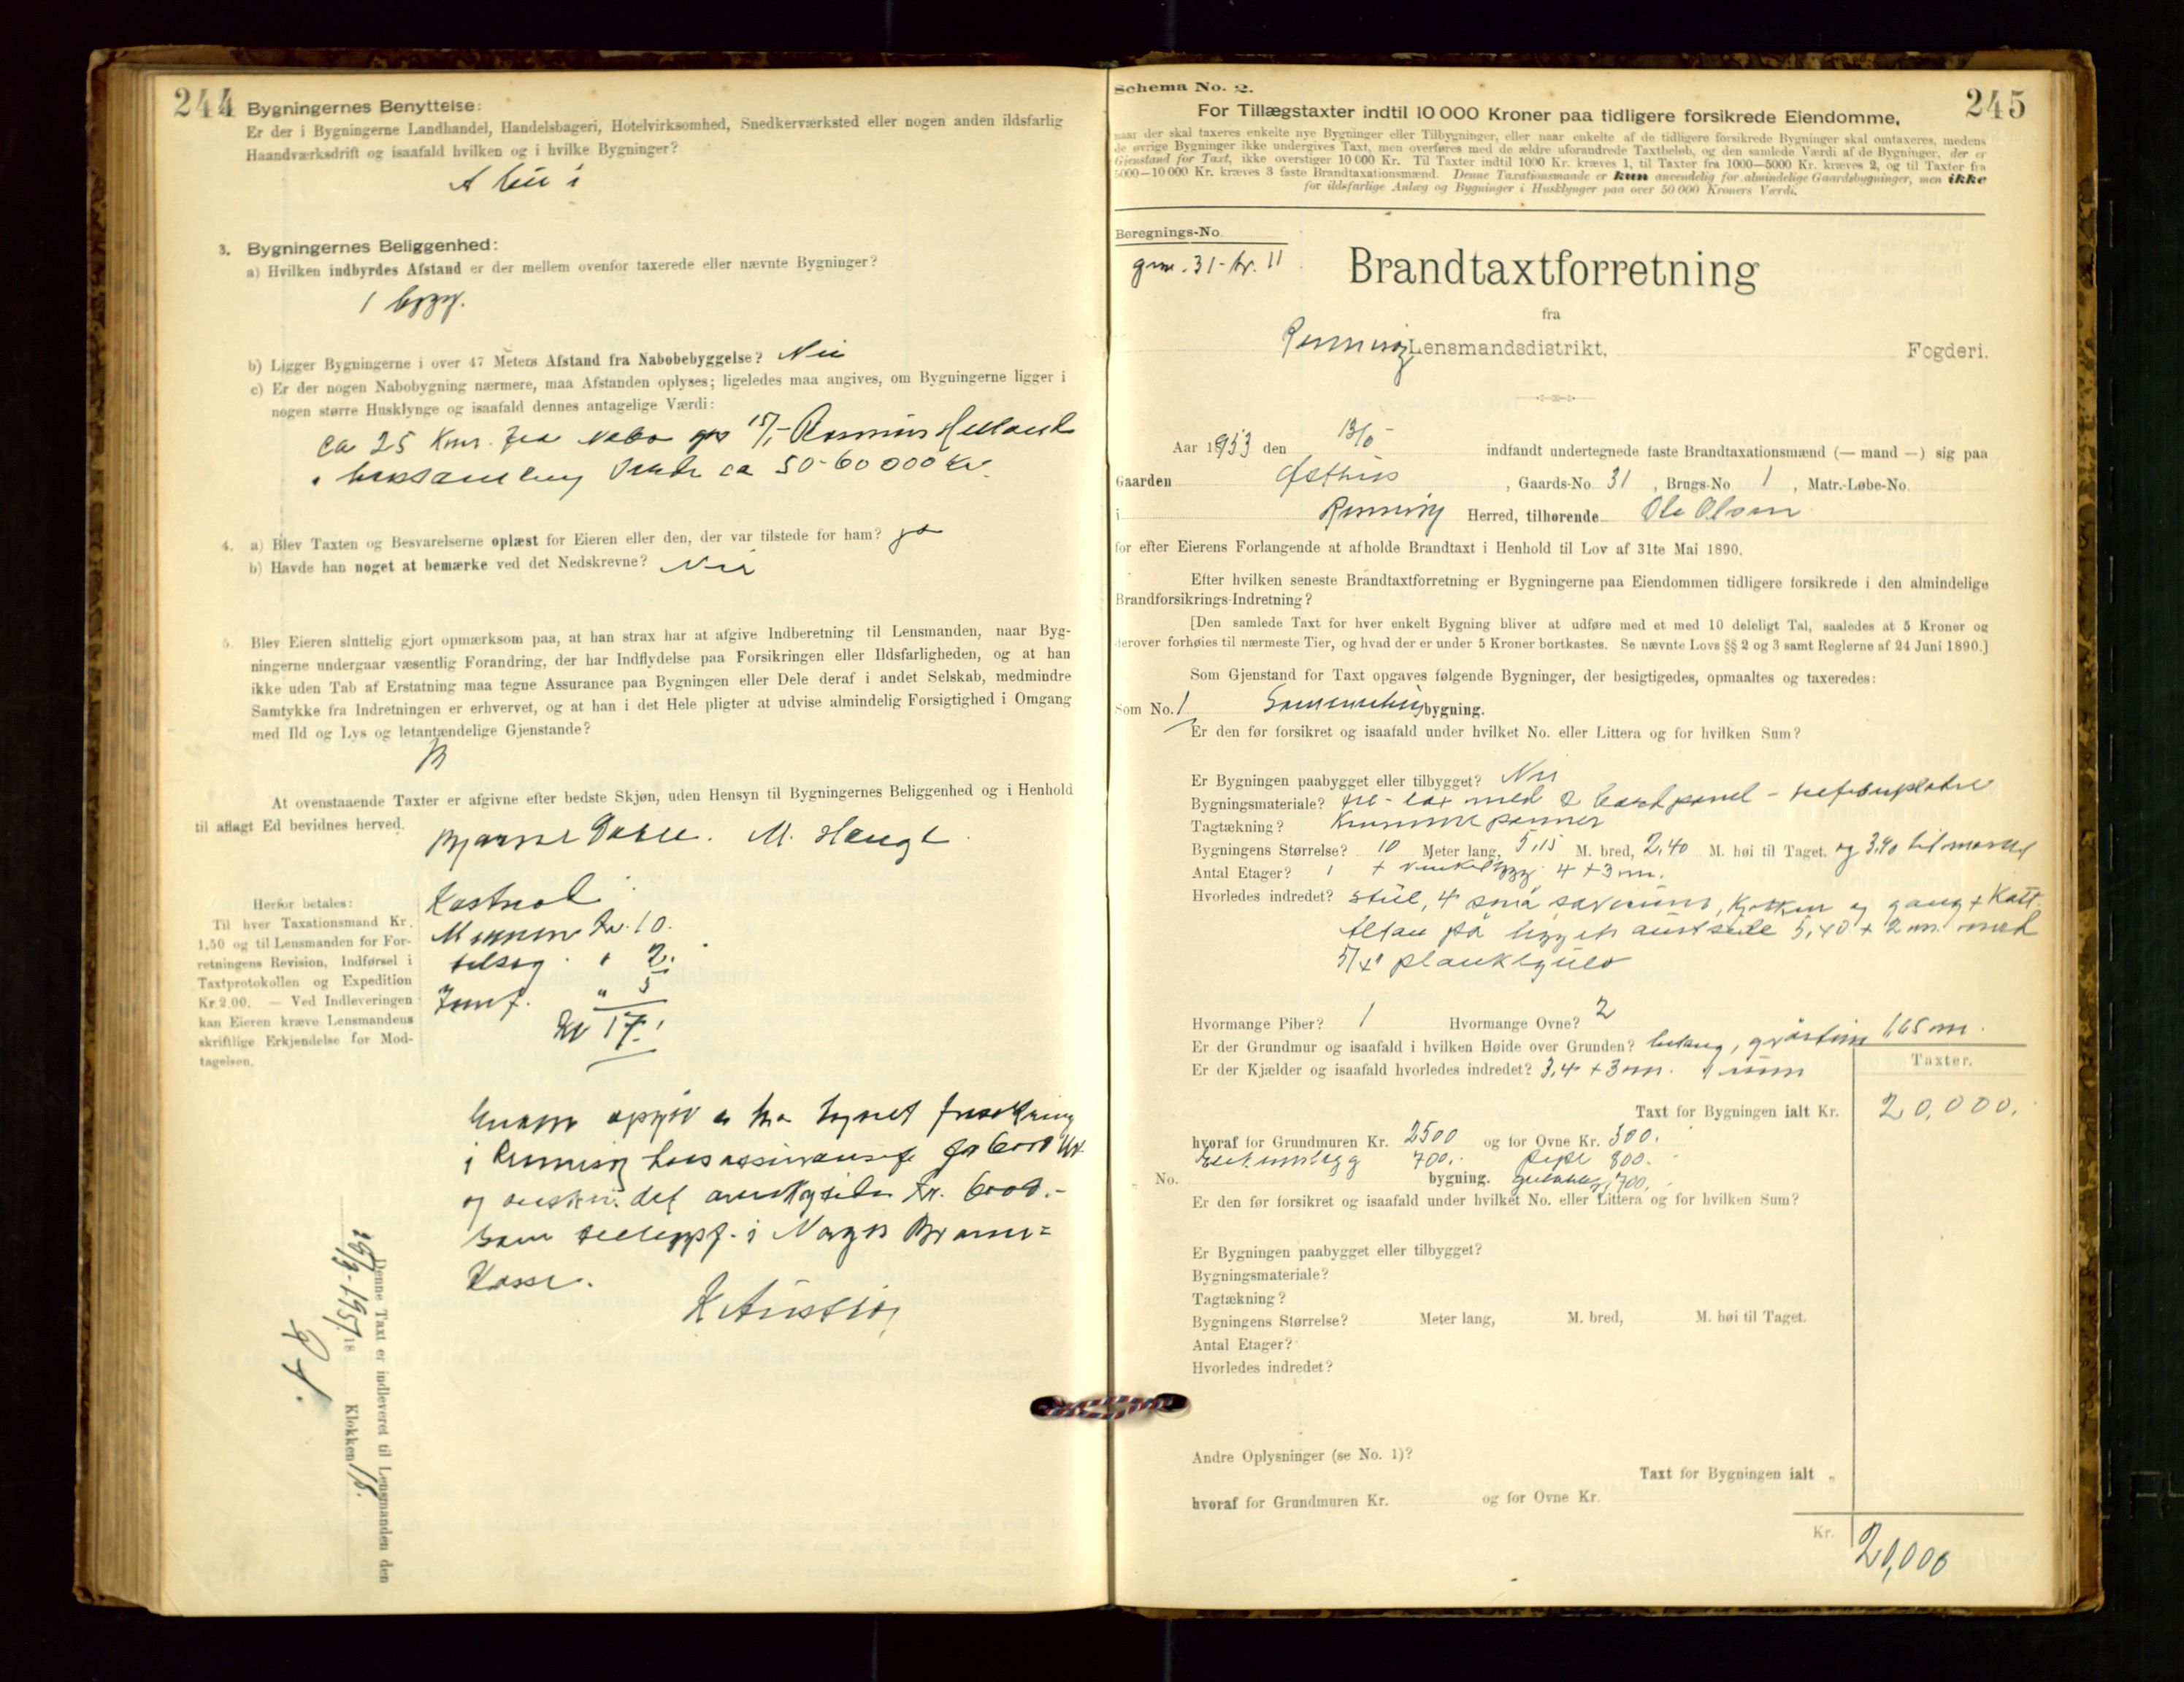 244
Bygningernes Benyttelse:
Er der i Bygningerne Landhandel, Handelsbageri, Hotelvirksomhed, Snedkerværksted eller nogen anden ildsfarlig
Haandværksdrift og isaafald hvilken og i hvilke Bygninger?
3. Bygningernes Beliggenhed:
a) Hvilken indbyrdes Afstand er der mellem ovenfor taxerede eller nævnte Bygninger?
1 bygg.
b) Ligger Bygningerne i over 47 Meters Afstand fra Nabobebyggelse? Nei
c) Er der nogen Nabobygning nærmere, maa Afstanden oplyses; ligeledes maa angives, om Bygningerne ligger i
nogen større Husklynge og isaafald dennes antagelige Værdi:
ca 25 fra Nabo
ca 50-60000 kr.
4. a) Blev Taxten og Besvarelserne oplæst for Eieren eller den, der var tilstede for ham? ja
b) Havde han noget at bemærke ved det Nedskrevne? Nei
5. Blev Eieren sluttelig gjort opmærksom paa, at han strax har at afgive Indberetning til Lensmanden, naar Byg-
ningerne undergaar væsentlig Forandring, der har Indflydelse paa Forsikringen eller Ildsfarligheden, og at han
ikke uden Tab af Erstatning maa tegne Assurance paa Bygningen eller Dele deraf i andet Selskab, medmindre
Samtykke fra Indretningen er erhvervet, og at han i det Hele pligter at udvise almindelig Forsigtighed i Omgang
med Ild og Lys og letantændelige Gjenstande?
At ovenstaaende Taxter er afgivne efter bedste Skjøn, uden Hensyn til Bygningernes Beliggenhed og i Henhold
til aflagt Ed bevidnes herved.
M. Hauge
Herfor betales:
Til hver Taxationsmand Kr.
1,50 og til Lensmanden for For-
retningens Revision, Indførsel i
Taxtprotokollen og Expedition
Kr. 2,00. — Ved Indleveringen
kan Eieren kræve Lensmandens
skriftlige Erkjendelse for Mod-
tagelsen.
Kostnad
Kr. 10.
" 2.
" 5
Kr 17.
i
og kr. 6000.-
som i Norges Brann=
Kasse.
Denne Taxt er indleveret til Lensmanden den
18 Klokken
Schema No. 2.
245
For Tillægstaxter indtil 10 000 Kroner paa tidligere forsikrede Eiendomme,
naar der skal taxeres enkelte nye Bygninger eller Tilbygninger, eller naar enkelte af de tidligere forsikrede Bygninger skal omtaxeres, medens
de øvrige Bygninger ikke undergives Taxt, men overføres med de ældre uforandrede Taxtbeløb, og den samlede Værdi af de Bygninger, der er
Gjenstand for Taxt, ikke overstiger 10 000 Kr. Til Taxter indtil 1000 Kr. kræves 1, til Taxter fra 1000—5000 Kr. kræves 2, og til Taxter fra
5000—10 000 Kr. kræves 3 faste Brandtaxationsmænd. Denne Taxationsmaade er kun anvendelig for almindelige Gaardsbygninger, men ikke
for ildsfarlige Anlæg og Bygninger i Husklynger paa over 50 000 Kroners Værdi.
Beregnings-No.
Brandtaxtforretning
fra
Lensmandsdistrikt, Fogderi.
Aar 1953 den indfandt undertegnede faste Brandtaxationsmænd (— mand —) sig paa
Gaarden , Gaards-No. 31 , Brugs-No. 1 , Matr.-Løbe-No.
i Herred, tilhørende Ole Olsen
for efter Eierens Forlangende at afholde Brandtaxt i Henhold til Lov af 31te Mai 1890.
Efter hvilken seneste Brandtaxtforretning er Bygningerne paa Eiendommen tidligere forsikrede i den almindelige
Brandforsikrings-Indretning?
[Den samlede Taxt for hver enkelt Bygning bliver at udføre med et med 10 deleligt Tal, saaledes at 5 Kroner og
derover forhøies til nærmeste Tier, og hvad der er under 5 Kroner bortkastes. Se nævnte Lovs §§ 2 og 3 samt Reglerne af 24 Juni 1890.]
Som Gjenstand for Taxt opgaves følgende Bygninger, der besigtigedes, opmaaltes og taxeredes:
Som No. 1 bygning.
Er den før forsikret og isaafald under hvilket No. eller Littera og for hvilken Sum?
Er Bygningen paabygget eller tilbygget? Nei
Bygningsmateriale? med 2 bordpanel -
Tagtækning? panner
Bygningens Størrelse? 10 Meter lang, 5,15 M. bred, 2,40 M. høi til Taget. og 3,90 til
Antal Etager? 1 + 4 + 3 m.
Hvorledes indredet? 4 små soverum, kjøkken og gang +
på 5,40 + 2 m. med
plankegulv
Hvormange Piber? 1 Hvormange Ovne? 2
Er der Grundmur og isaafald i hvilken Høide over Grunden? gråstein 1,65 m.
Er der Kjælder og isaafald hvorledes indredet? 3,4 + 3 m. 1 rum
Taxter.
Taxt for Bygningen ialt Kr. 20,000.
hvoraf for Grundmuren Kr. 2500 og for Ovne Kr. 300.
700. pipe 800.
No. bygning.
Er den før forsikret og isaafald under hvilket No. eller Littera og for hvilken Sum?
Er Bygningen paabygget eller tilbygget?
Bygningsmateriale?
Tagtækning?
Bygningens Størrelse? Meter lang, M. bred, M. høi til Taget.
Antal Etager?
Hvorledes indredet?
Andre Oplysninger (se No. 1)?
Taxt for Bygningen ialt "
hvoraf for Grundmuren Kr. og for Ovne Kr.
Kr. 20,000